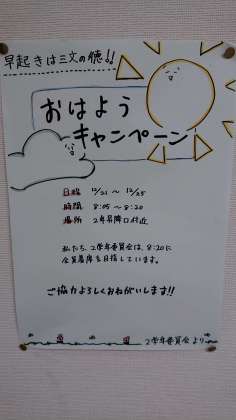 早起きは三文の徳!!
おはよう
キャンペーン
日程 12/21 ~ 12/25
時間 8:05 ~ 8:20
場所 2年昇降口付近
私たち、2学年委員会は、8:20に
全員着席を目指しています。
ご協力よろしくおねがいします!!
2学年委員会より